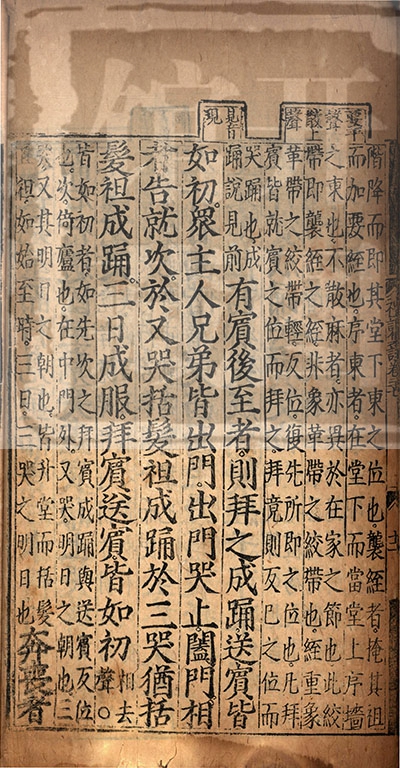 要平
聲
散上
聲
見音
現
階降而即其堂下東之位也。襲絰者。掩其袒
而加要絰也。序東者。在堂下而當堂上序墻
之東也。不散麻者。亦異於在家之節也。此絞
帶即襲絰之絰。非象革帶之絞帶也。絰重。象
革帶之絞帶輕。反位。復先所即之位也。凡拜
賓皆就賓之位而拜之。拜竟則反己之位而
哭踊也。成
踊說見前
有賓後至者。則拜之成踊。送賓皆
如初。眾主人兄弟皆出門。出門哭止。闔門。相
者告就次。於又哭。括髮袒成踊。於三哭。猶括
髮袒成踊。三日成服。拜賓送賓皆如初。
相去
聲。○
皆如初者。如先次之拜賓成踊與送賓反位
也。次。倚廬也。在中門外。又哭。明日之朝也。三
哭。又其明日之朝也。皆升堂而括髮
且袒如始至時。三日。三哭之明日也。
奔喪者